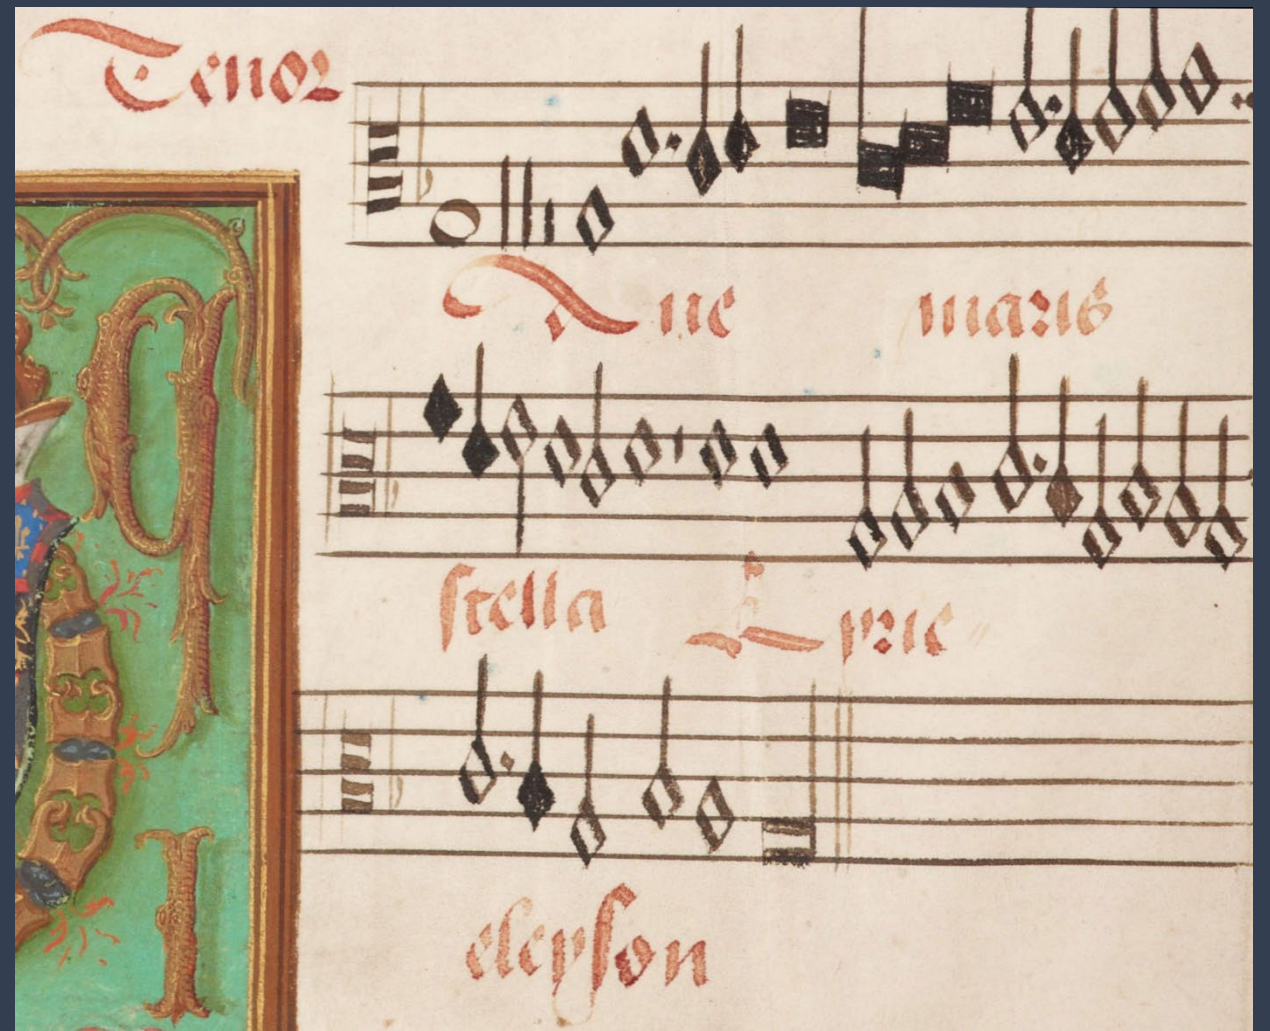 Tenor
Aue maris
stella kyrie
eleyson